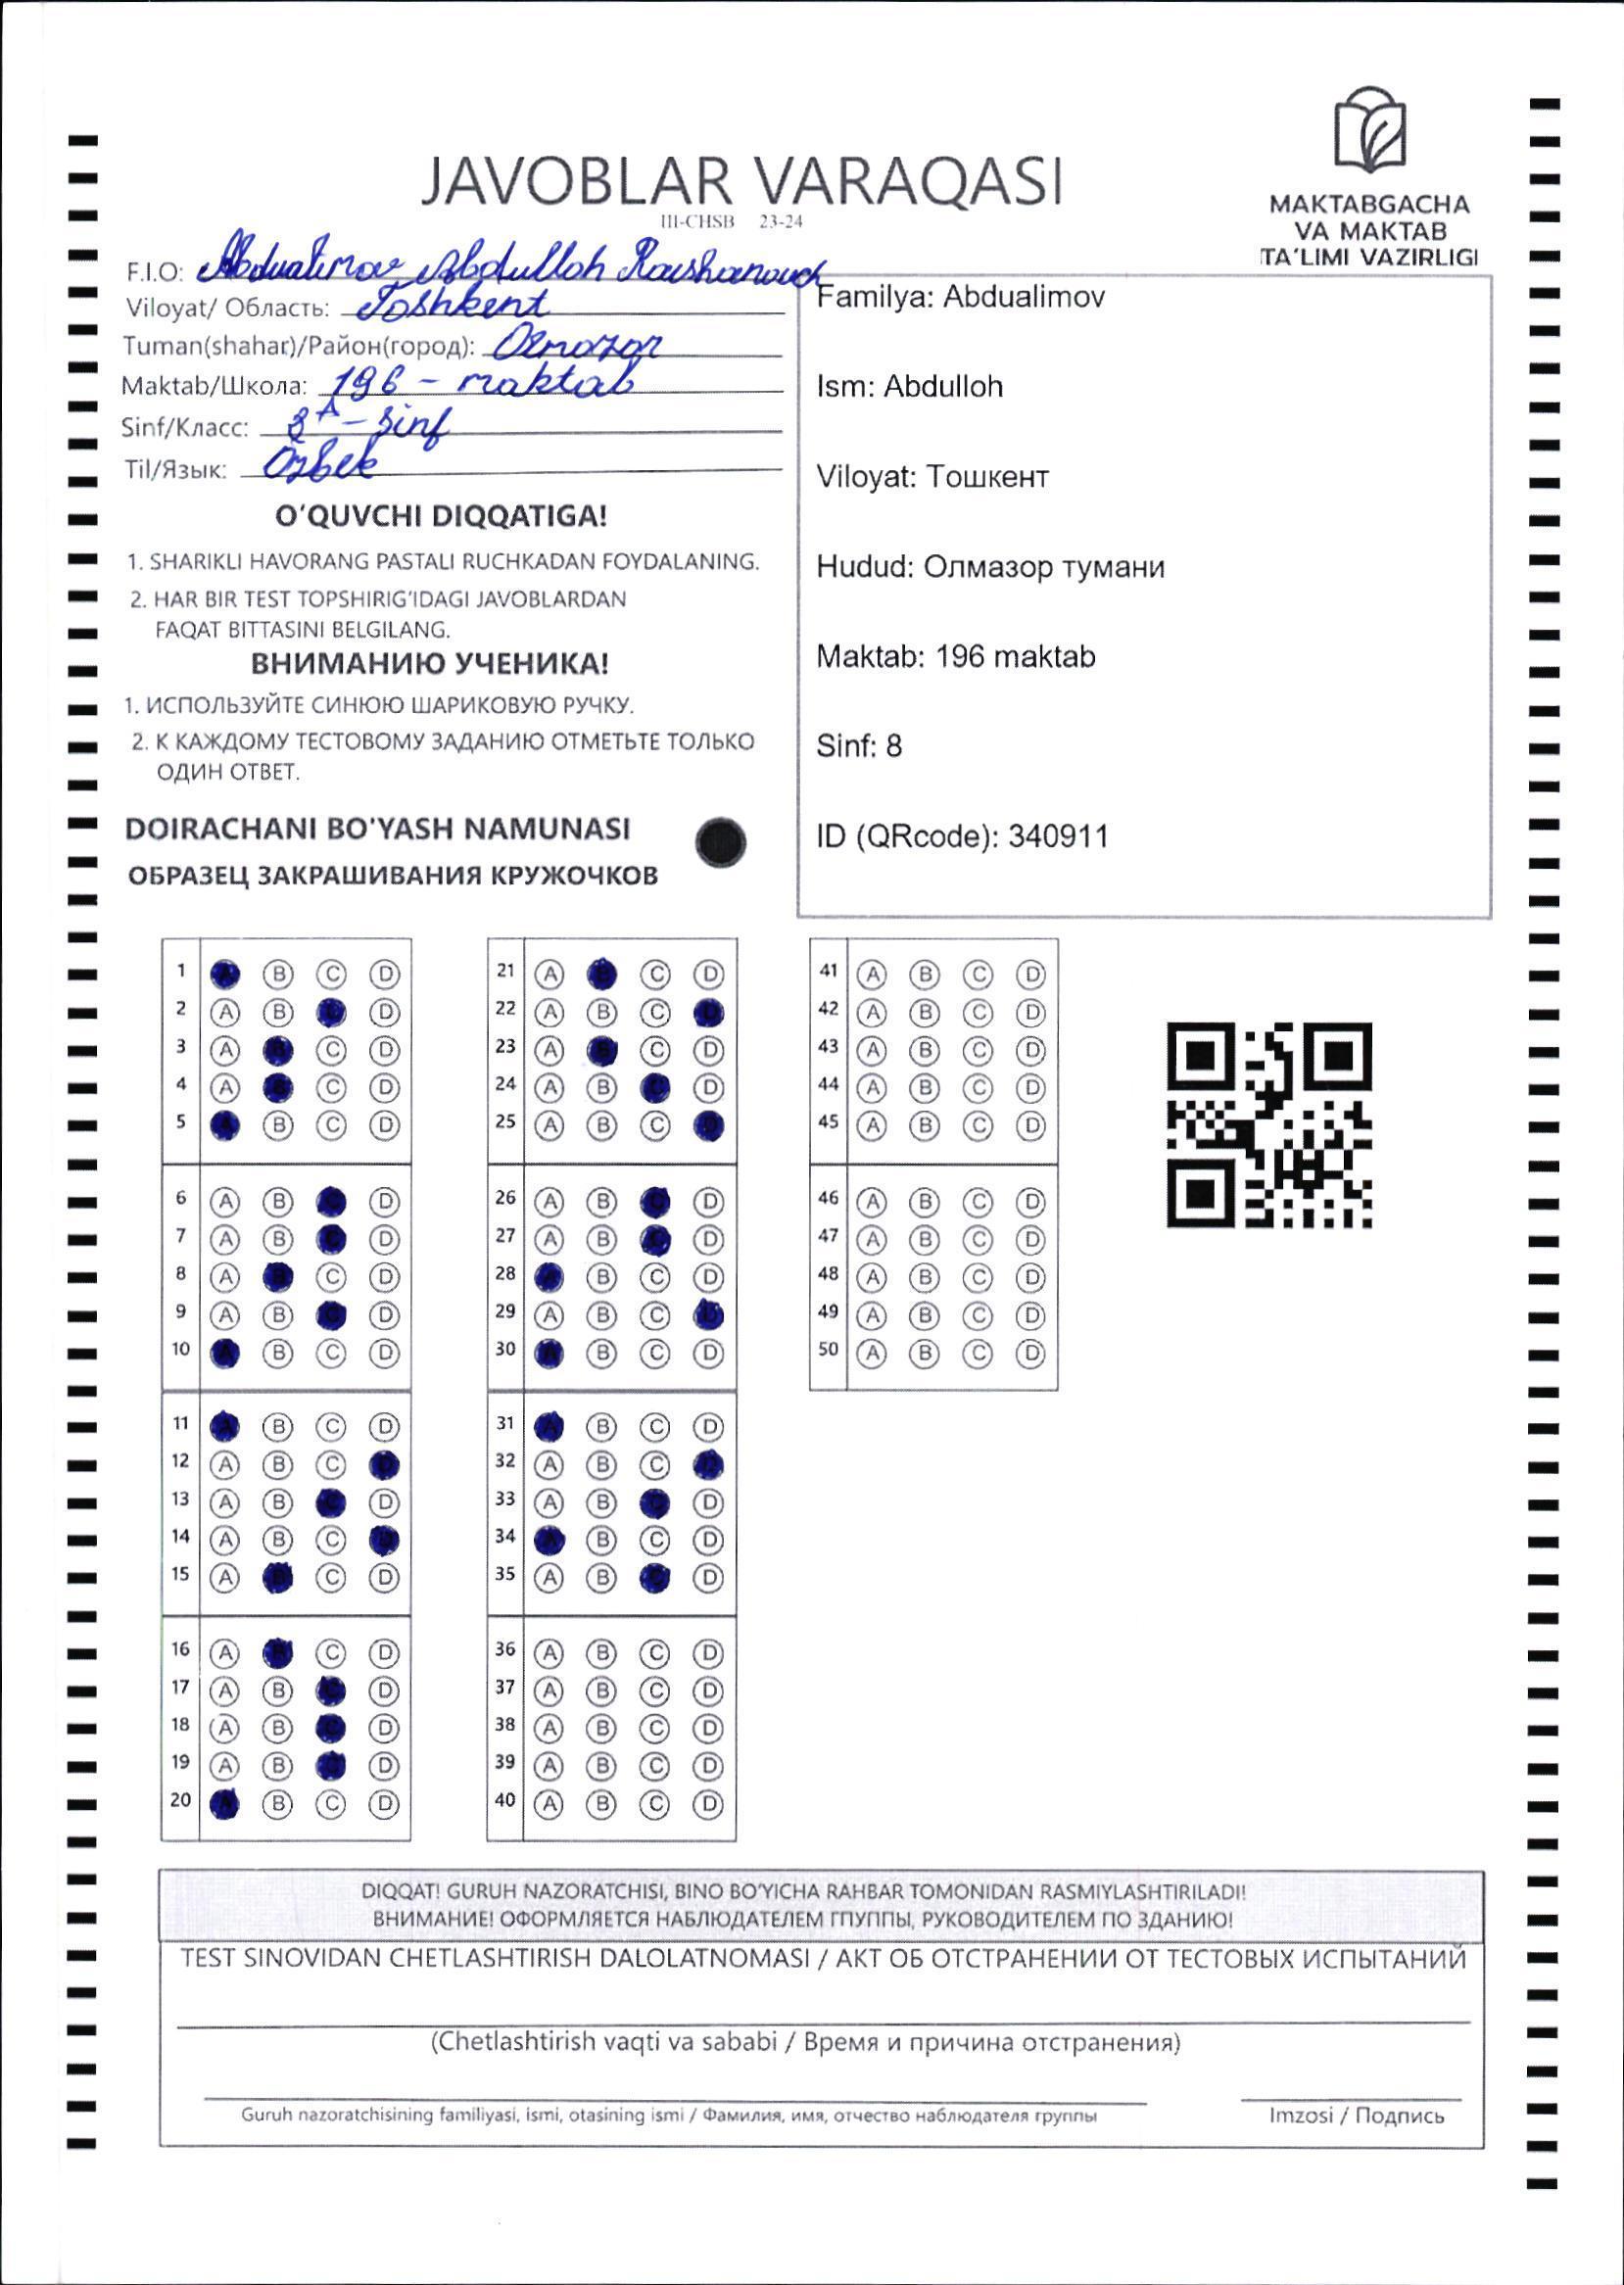 MAKTABGACHA
VA MAKTAB
TA'LIMI VAZIRLIGI
JAVOBLAR VARAQASI
III-CHSB 23-24
F.I.O: Abdualimov Abdulloh Ravshanovich
Viloyat/ Область: Toshkent
Tuman(shahar)/Район(город): Olmazor
Maktab/Школа: 196 - maktab
Sinf/Класс: 8 A - sinf
Til/Язык: Ozbek
Familya: Abdualimov
Ism: Abdulloh
Viloyat: Тошкент
Hudud: Олмазор тумани
Maktab: 196 maktab
Sinf: 8
ID (QRcode): 340911
O'QUVCHI DIQQATIGA!
1. SHARIKLI HAVORANG PASTALI RUCHKADAN FOYDALANING.
2. HAR BIR TEST TOPSHIRIG'IDAGI JAVOBLARDAN
FAQAT BITTASINI BELGILANG.
ВНИМАНИЮ УЧЕНИКА!
1. ИСПОЛЬЗУЙТЕ СИНЮЮ ШАРИКОВУЮ РУЧКУ.
2. К КАЖДОМУ ТЕСТОВОМУ ЗАДАНИЮ ОТМЕТЬТЕ ТОЛЬКО
ОДИН ОТВЕТ.
DOIRACHANI BO'YASH NAMUNASI
ОБРАЗЕЦ ЗАКРАШИВАНИЯ КРУЖОЧКОВ
1 A B C D
2 A B C D
3 A B C D
4 A B C D
5 A B C D
6 A B C D
7 A B C D
8 A B C D
9 A B C D
10 A B C D
11 A B C D
12 A B C D
13 A B C D
14 A B C D
15 A B C D
16 A B C D
17 A B C D
18 A B C D
19 A B C D
20 A B C D
21 A B C D
22 A B C D
23 A B C D
24 A B C D
25 A B C D
26 A B C D
27 A B C D
28 A B C D
29 A B C D
30 A B C D
31 A B C D
32 A B C D
33 A B C D
34 A B C D
35 A B C D
36 A B C D
37 A B C D
38 A B C D
39 A B C D
40 A B C D
41 A B C D
42 A B C D
43 A B C D
44 A B C D
45 A B C D
46 A B C D
47 A B C D
48 A B C D
49 A B C D
50 A B C D
DIQQAT! GURUH NAZORATCHISI, BINO BO'YICHA RAHBAR TOMONIDAN RASMIYLASHTIRILADI!
ВНИМАНИЕ! ОФОРМЛЯЕТСЯ НАБЛЮДАТЕЛЕМ ГПУППЫ, РУКОВОДИТЕЛЕМ ПО ЗДАНИЮ!
TEST SINOVIDAN CHETLASHTIRISH DALOLATNOMASI / АКТ ОБ ОТСТРАНЕНИИ ОТ ТЕСТОВЫХ ИСПЫТАНИЙ
(Chetlashtirish vaqti va sababi / Время и причина отстранения)
Guruh nazoratchisining familiyasi, ismi, otasining ismi / Фамилия, имя, отчество наблюдателя группы
Imzosi / Подпись